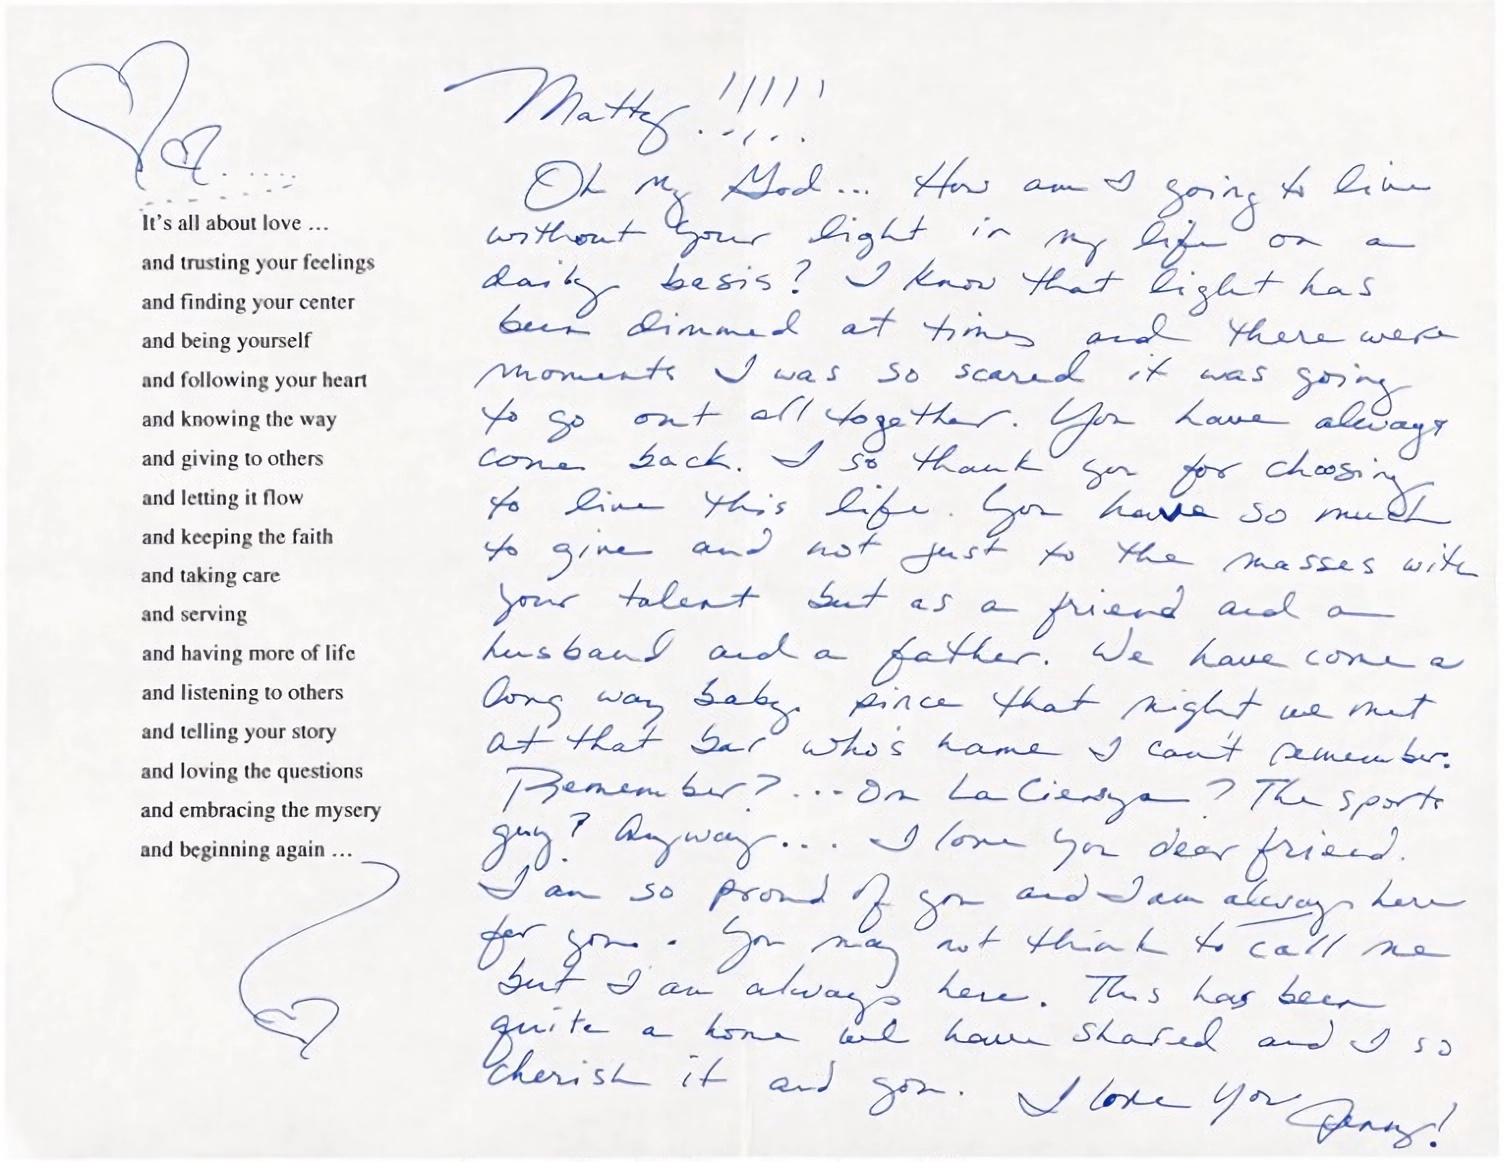 It's all about love ...
and trusting your feelings
and finding your center
and being yourself
and following your heart
and knowing the way
and giving to others
and letting it flow
and keeping the faith
and taking care
and serving
and having more of life
and listening to others
and telling your story
and loving the questions
and embracing the mysery
and beginning again ...
Matty!!!!!
Oh my God... How am I going to live
without your light in my life on a
daily basis? I know that light has
been dimmed at times and there were
moments I was so scared it was going
to go out all together. You have always
come back. I so thank you for choosing
to live this life. You have so much
to give and not just to the masses with
your talent but as a friend and a
husband and a father. We have come a
long way baby. since that night we met
at that bar who's name I can't remember.
Remember?... On La Cienega? The sports
guy? Anyway... I love you dear friend.
I am so proud of you and I am always here
for you. You may not think to call me
but I am always here. This has been
quite a home we have shared and I so
cherish it and you. I love you
Jenny!